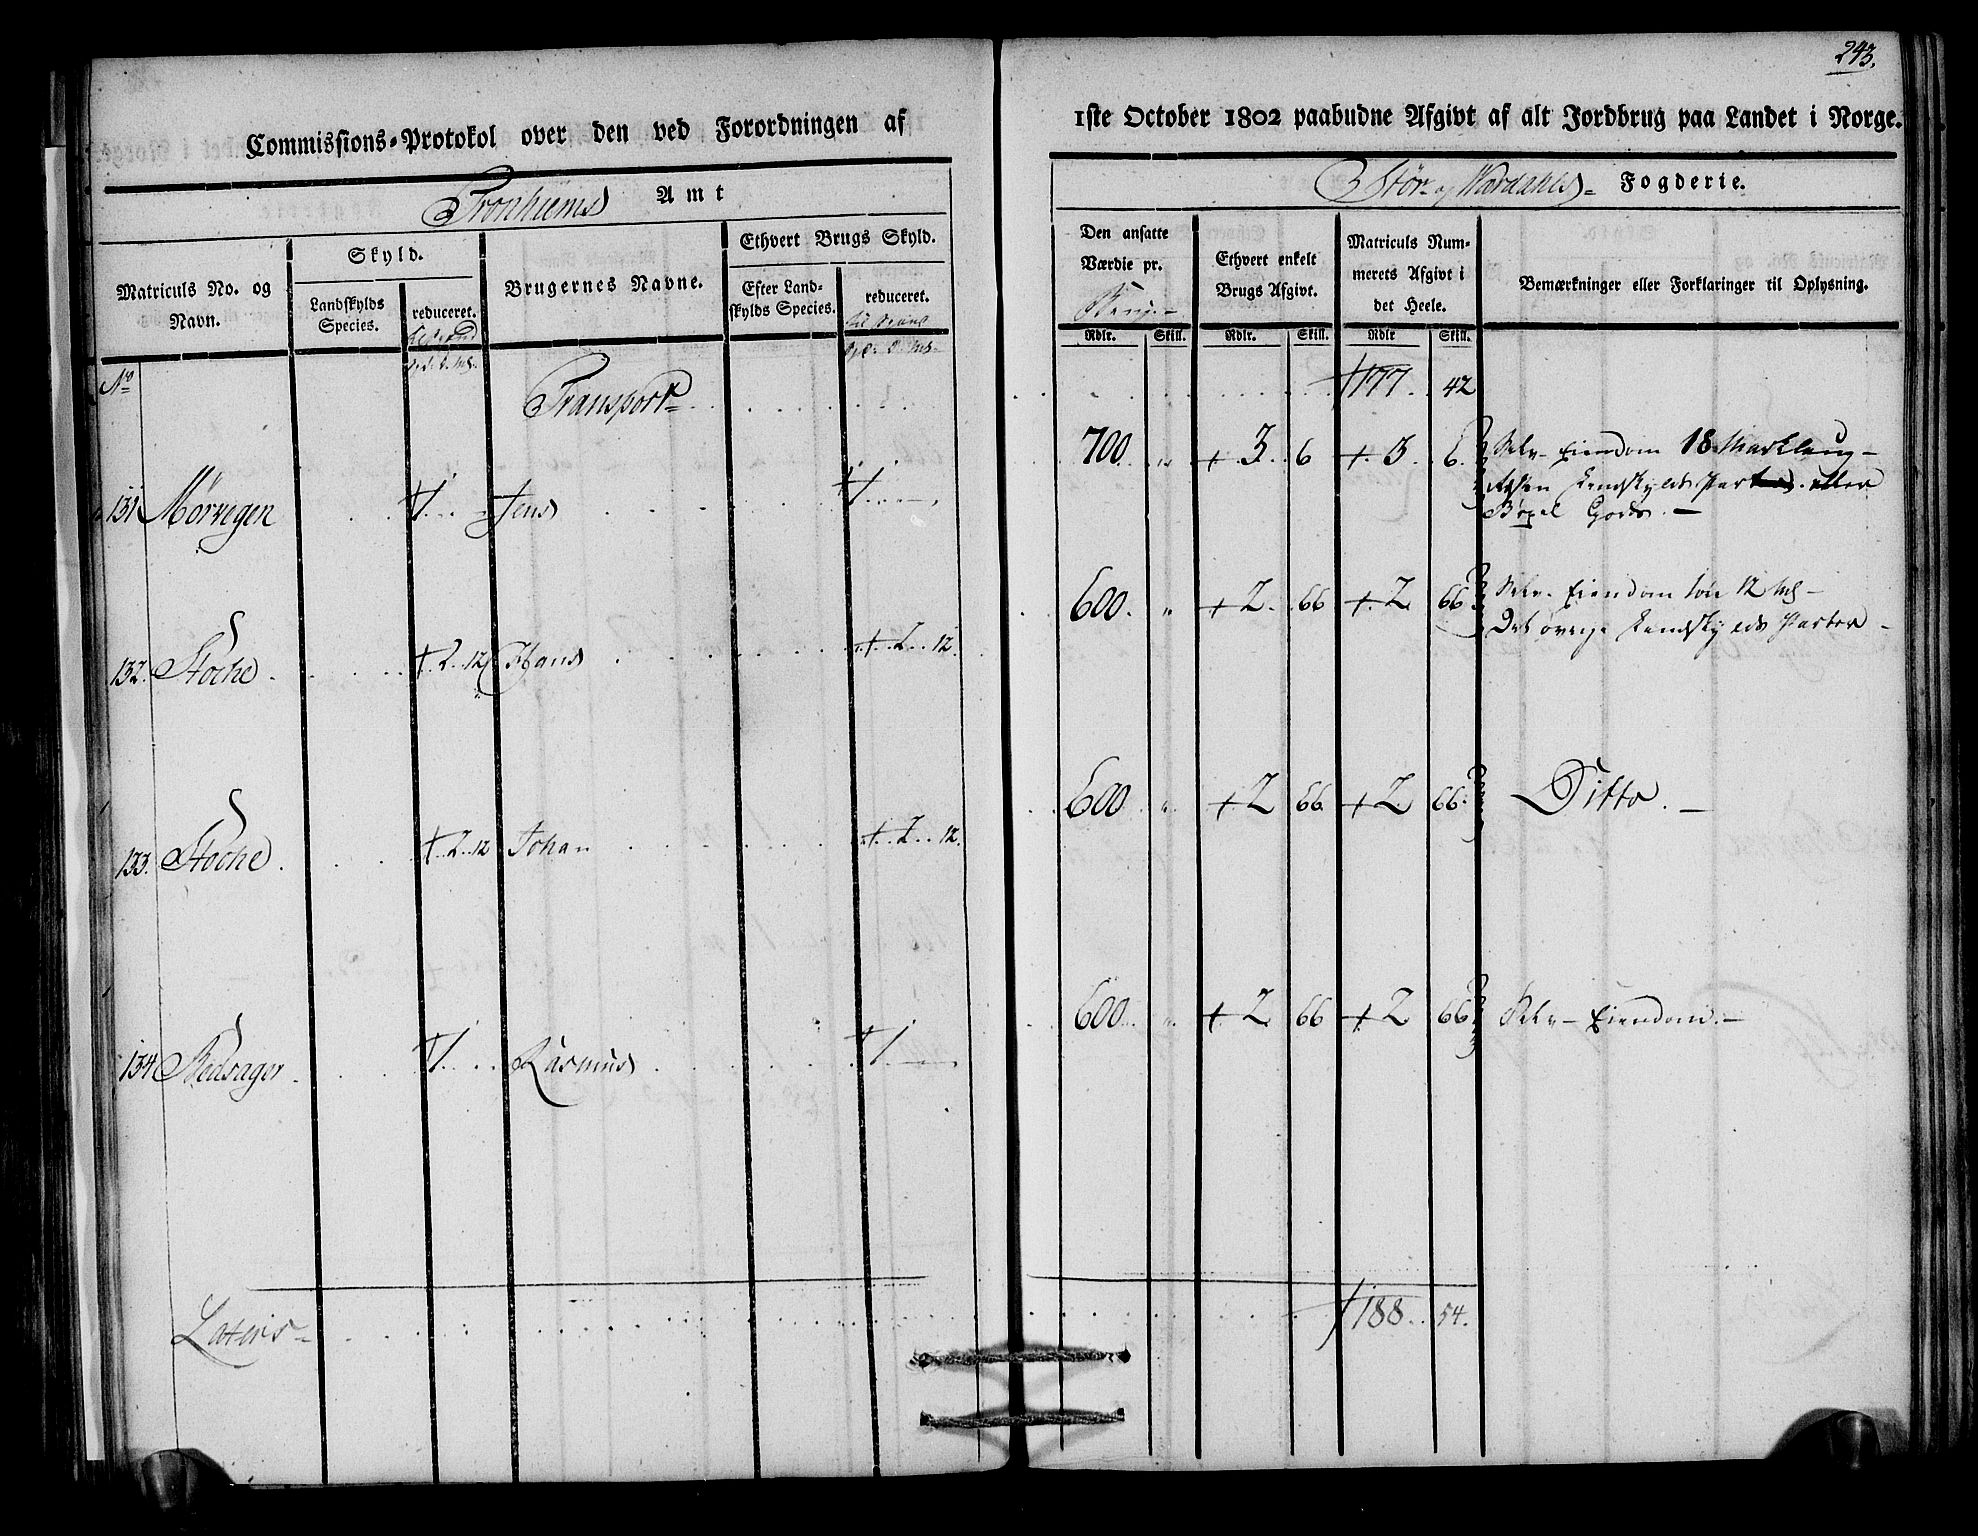 243.
Commissions-Protokol over den ved Forordningen af
1ste October 1802 paabudne Afgivt af alt Jordbrug paa Landet i Norge.
Tronhiems Amt
Stør og Værdahls Fogderie.
Matriculs No. og Navn.
Skyld.
Landskylds Species.
reduceret.
Brugernes Navne.
Ethvert Brugs Skyld.
Efter Landskylds Species.
reduceret.
Den ansatte Værdie pr.
Rdlr. Skill.
Ethvert enkelt Brugs Afgivt.
Rdlr. Skill.
Matriculs Nummerets Afgivt i det Heele.
Rdlr Skill.
Bemærkninger eller Forklaringer til Oplysning.
No
Transport 177. 42
131 Mørvegen 1 Jens 1 700 3 6 3 6. Selv-Eiendom 18 Marklaug
Landskylds Parter
Gods.
132. Stoche 2 12 Hans 2 12. 600. 2. 66 2 66 Selv-Eiendom 12
Det øvrige Landskylds Parter
133. Stoche 2 12 Johan 2 12. 600 2 66 2 66. Ditto.
134 Redsager 1 Rasmus 1 600 2 66 2 66 Selv-Eiendom.
Lateris 188 54.